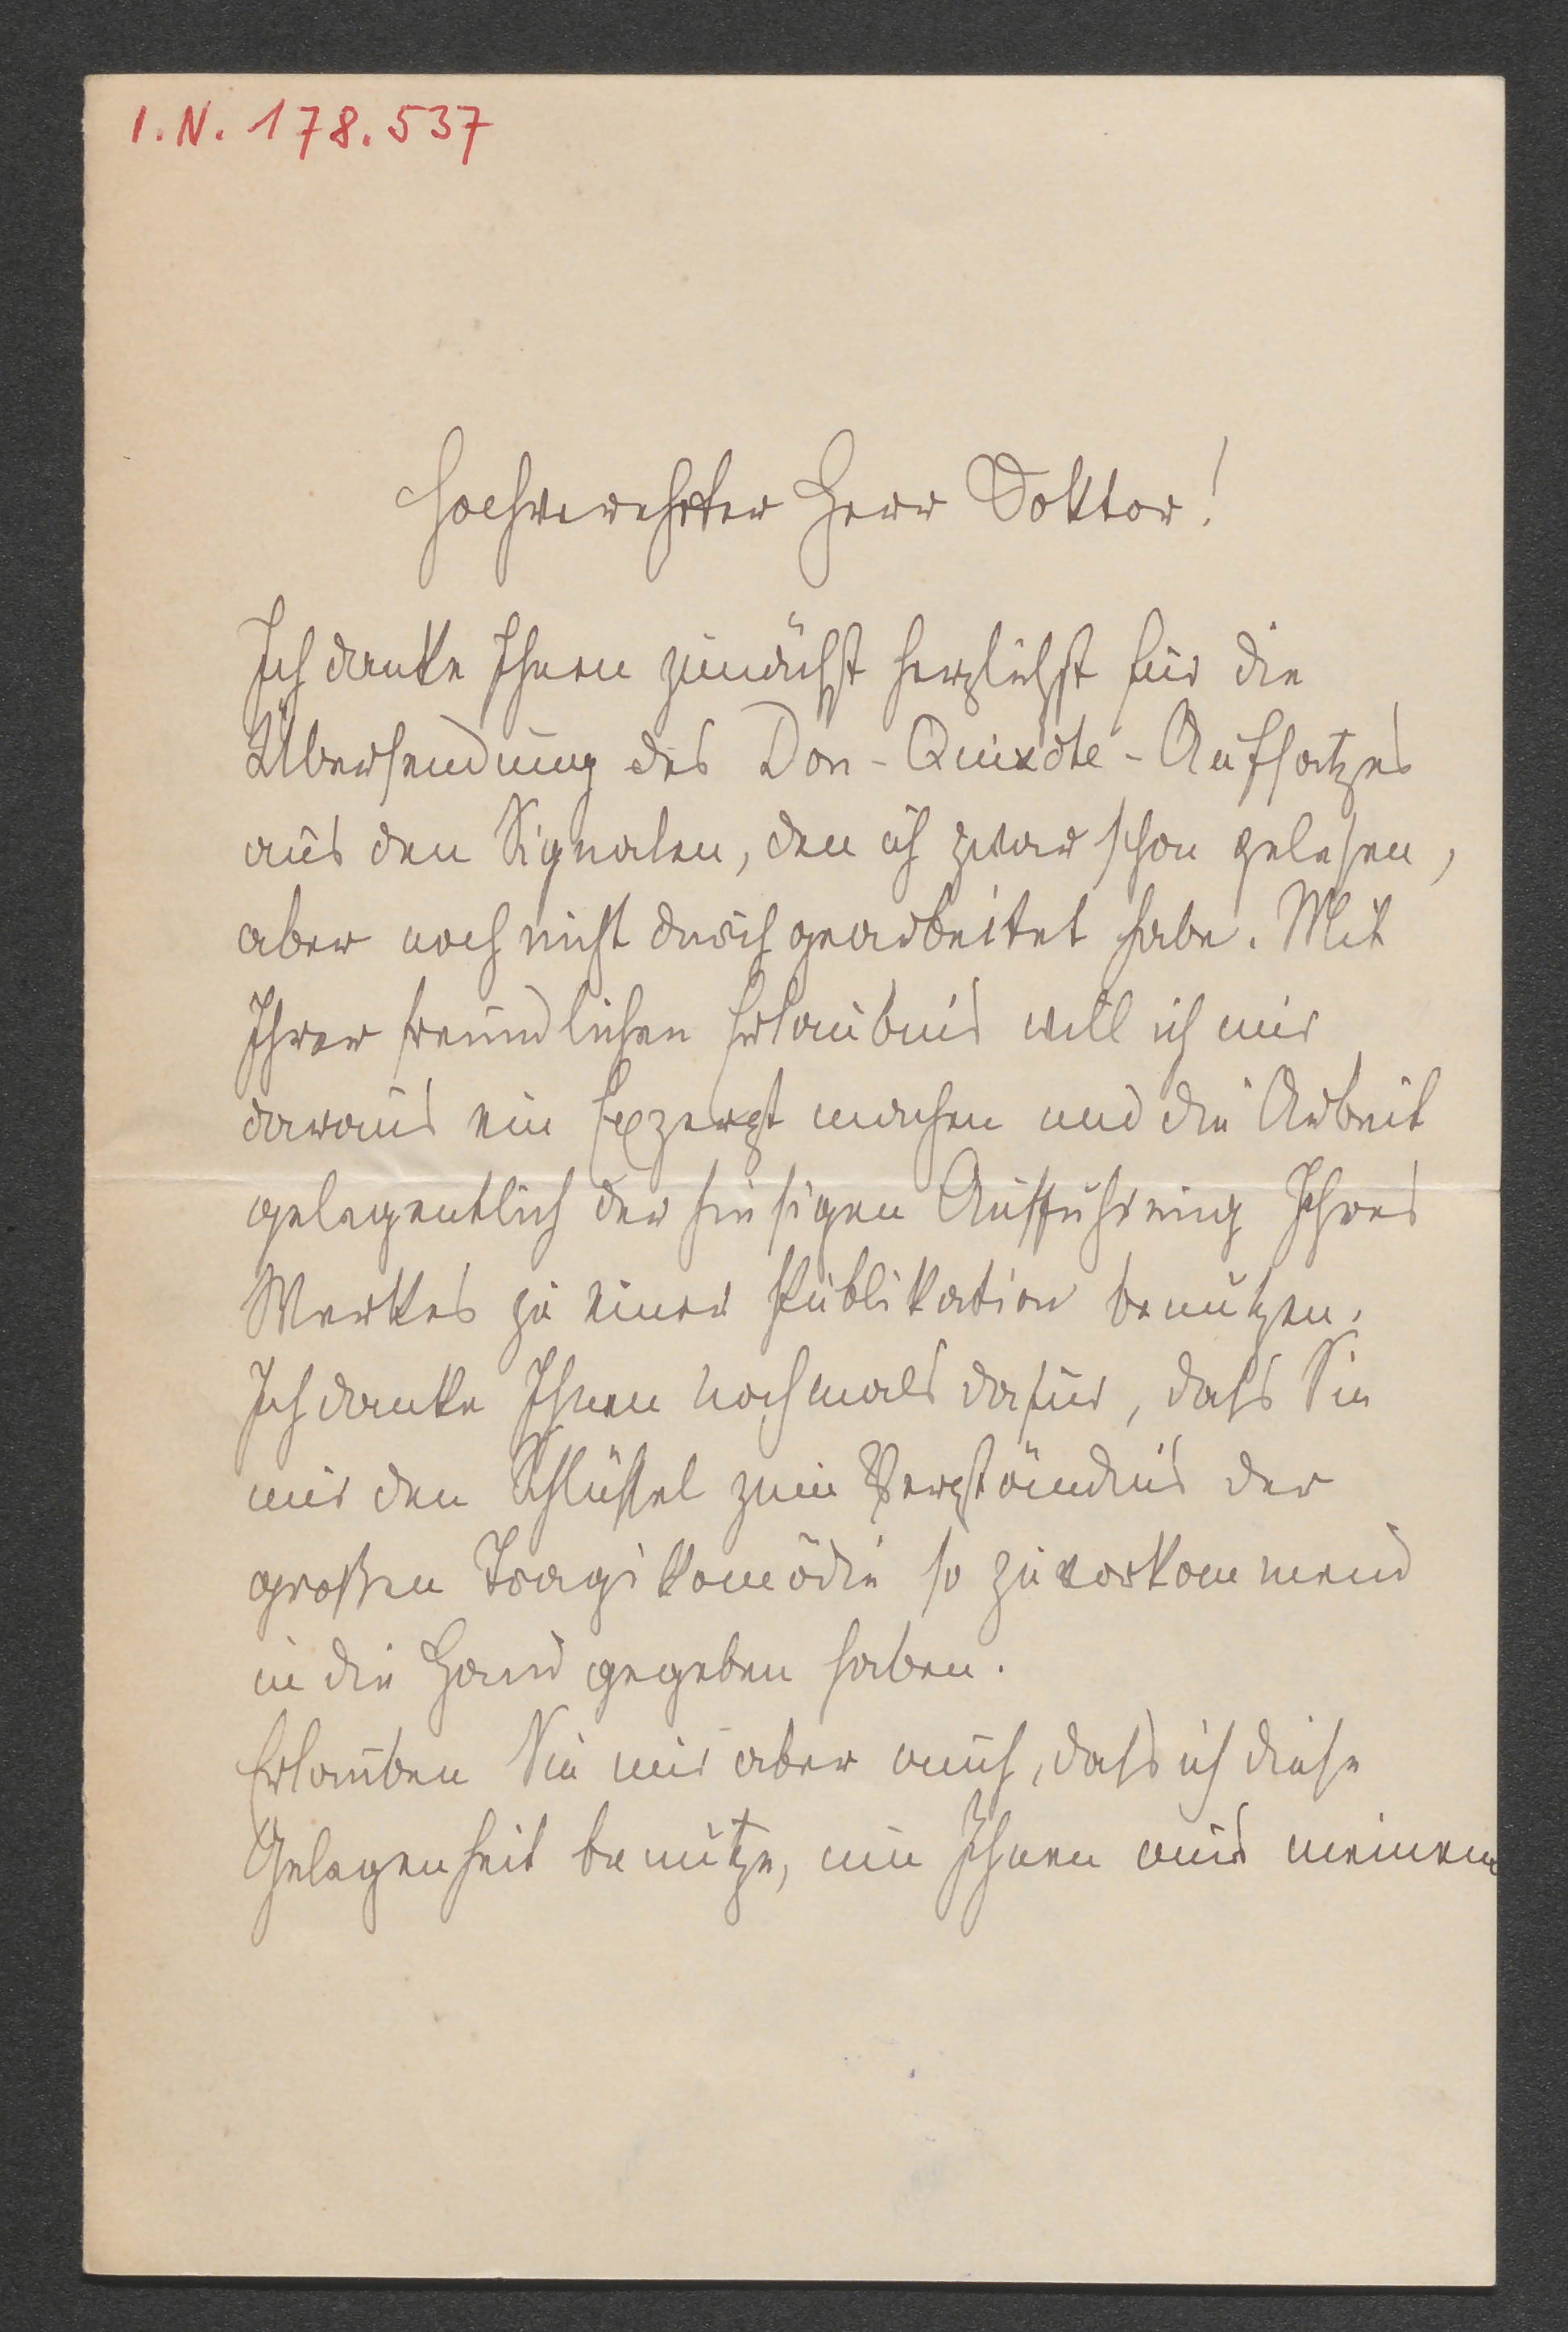 I.N. 178.537
Hochverehrter Herr Doktor!
Ich danke Ihnen zunächst herzlichst für die
Übersendung des Don-Quixote-Aufsatzes
aus den Signalen, den ich zwar schon gelesen,
aber noch nicht durchgearbeitet habe. Mit
Ihrer freundlichen Erlaubnis will ich mir
daraus ein Exzerpt machen und die Arbeit
gelegentlich der hiesigen Aufführung Ihres
Werkes zu einer Publikation benutzen.
Ich danke Ihnen nochmals dafür, dass Sie
mir den Schlüssel zum Verständnis der
großen Tragikomödie so zuvorkommend
in die Hand gegeben haben.
Erlauben Sie mir aber auch, dass ich diese
Gelegenheit benutze, um Ihnen aus meinem